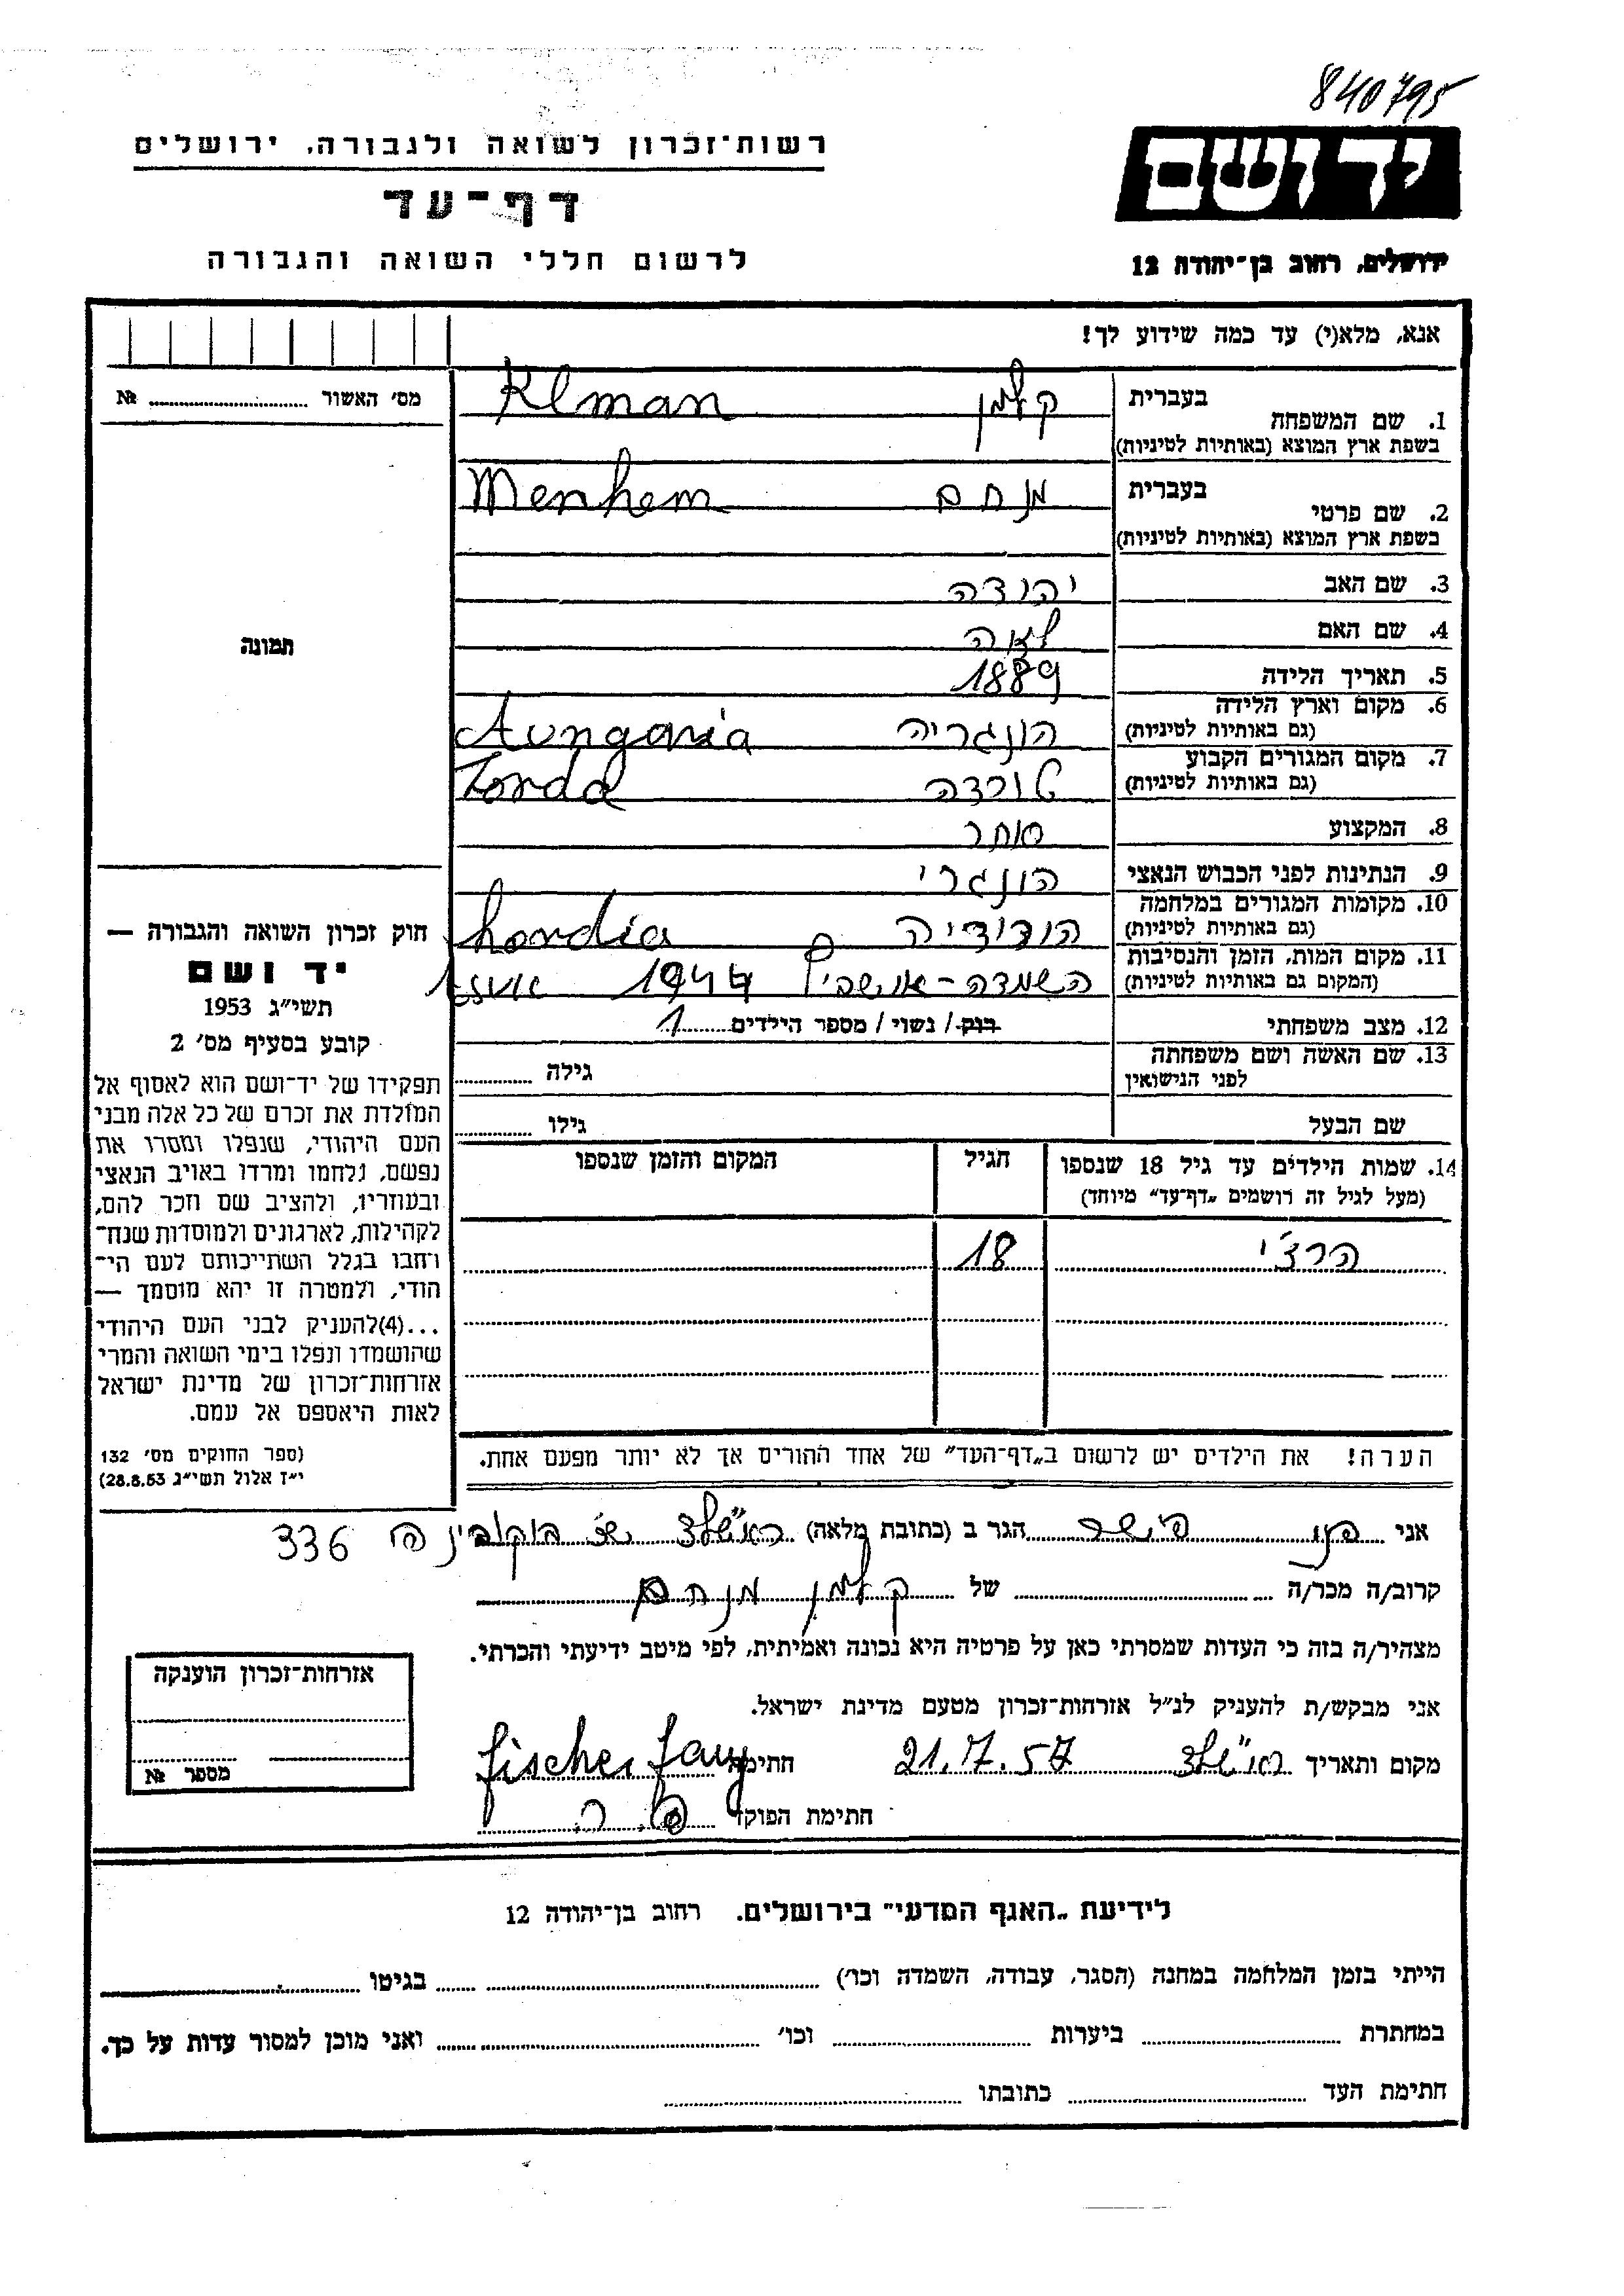 840795
רשות־זכרון לשואה ולגבורה, ירושלים
דף־עד
לרשום חללי השואה והגבורה
יד ושם
ירושלים, רחוב בן־יהודה 12
אנא, מלא(י) עד כמה שידוע לך!
מס׳ האשור № 
1. שם המשפחה בעברית קלמן Klman
בשפת ארץ המוצא (באותיות לטיניות)
2. שם פרטי בעברית מנחם Menhem
בשפת ארץ המוצא (באותיות לטיניות)
3. שם האב יהודה
4. שם האם לאה
5. תאריך הלידה 1889
6. מקום וארץ הלידה הונגריה
(גם באותיות לטיניות)
7. מקום המגורים הקבוע טורדה Torda
(גם באותיות לטיניות)
8. המקצוע סוחר
9. הנתינות לפני הכבוש הנאצי הונגרי
10. מקומות המגורים במלחמה הורודיה hordia
(גם באותיות לטיניות)
11. מקום המות, הזמן והנסיבות השמדה - אושביץ 1944
(המקום גם באותיות לטיניות)
12. מצב משפחתי רוק / נשוי / מספר הילדים 1
13. שם האשה ושם משפחתה גילה
לפני הנישואין
שם הבעל גילו
14. שמות הילדים עד גיל 18 שנספו הגיל המקום והזמן שנספו
(מעל לגיל זה רושמים „דף־עד״ מיוחד)
הרצ׳י 18
הערה! את הילדים יש לרשום ב„דף־העד״ של אחד ההורים אך לא יותר מפעם אחת.
תמונה
חוק זכרון השואה והגבורה —
יד ושם
תשי״ג 1953
קובע בסעיף מס׳ 2
תפקידו של יד־ושם הוא לאסוף אל
המולדת את זכרם של כל אלה מבני
העם היהודי, שנפלו ומסרו את
נפשם, נלחמו ומרדו באויב הנאצי
ובעוזריו, ולהציב שם וזכר להם,
לקהילות, לארגונים ולמוסדות שנח־
רבו בגלל השתייכותם לעם הי־
הודי, ולמטרה זו יהא מוסמך —
...(4)להעניק לבני העם היהודי
שהושמדו ונפלו בימי השואה והמרי
אזרחות־זכרון של מדינת ישראל
לאות היאספם אל עמם.
(ספר החוקים מס׳ 132
י״ז אלול תשי״ג 28.8.53)
אני פני פישר הגר ב (כתובת מלאה) ראשל״צ 336
קרוב/ה מכר/ה של קלמן מנחם
מצהיר/ה בזה כי העדות שמסרתי כאן על פרטיה היא נכונה ואמיתית, לפי מיטב ידיעתי והכרתי.
אני מבקש/ת להעניק לנ״ל אזרחות־זכרון מטעם מדינת ישראל.
מקום ותאריך ראשל״צ 21.7.57 חתימה fischer fany
חתימת הפוקד
אזרחות־זכרון הוענקה
מספר №
לידיעת „האגף המדעי״ בירושלים. רחוב בן־יהודה 12
הייתי בזמן המלחמה במחנה (הסגר, עבודה, השמדה וכו׳) בגיטו
במחתרת ביערות וכו׳ ואני מוכן למסור עדות על כך.
חתימת העד כתובתו